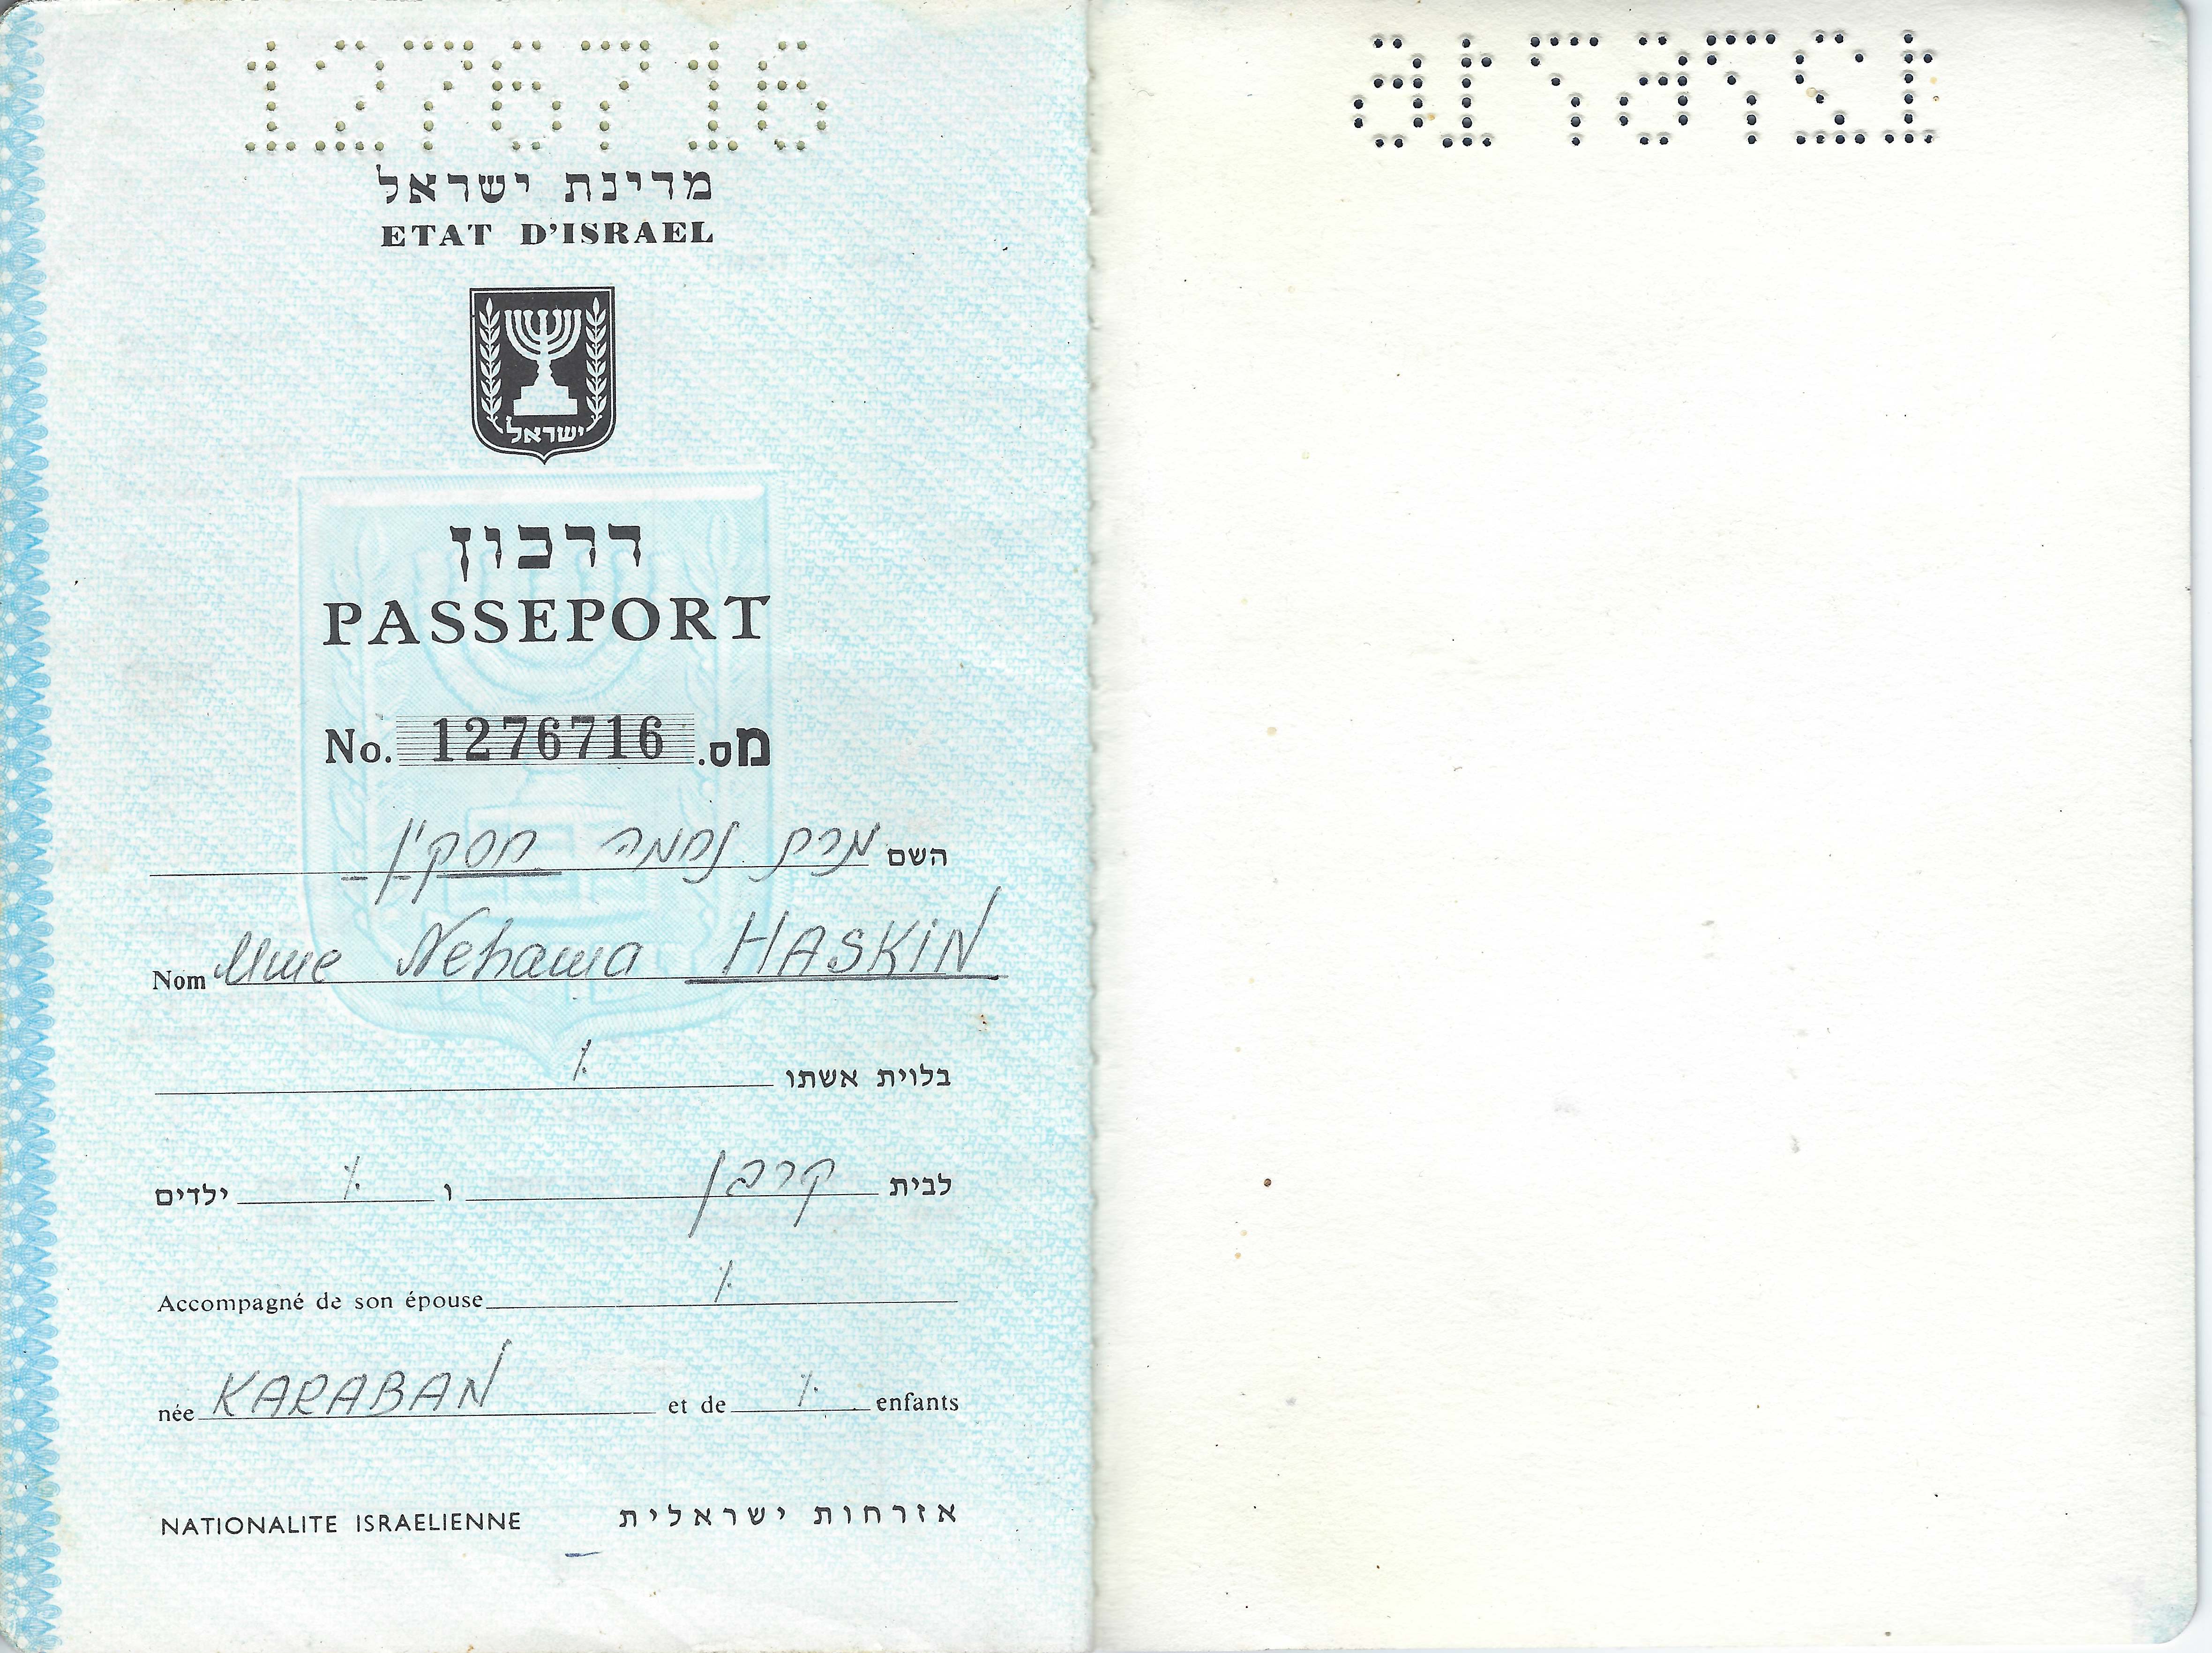 1276716
מדינת ישראל
ETAT D'ISRAEL
ישראל
דרכון
PASSEPORT
No. 1276716 מס.
השם מרת נחמה חסקין
Nom Mme Nehama HASKIN
בלוית אשתו ٪
לבית קרבן ו ٪ ילדים
Accompagné de son épouse ٪
née KARABAN et de ٪ enfants
NATIONALITE ISRAELIENNE אזרחות ישראלית
1276716